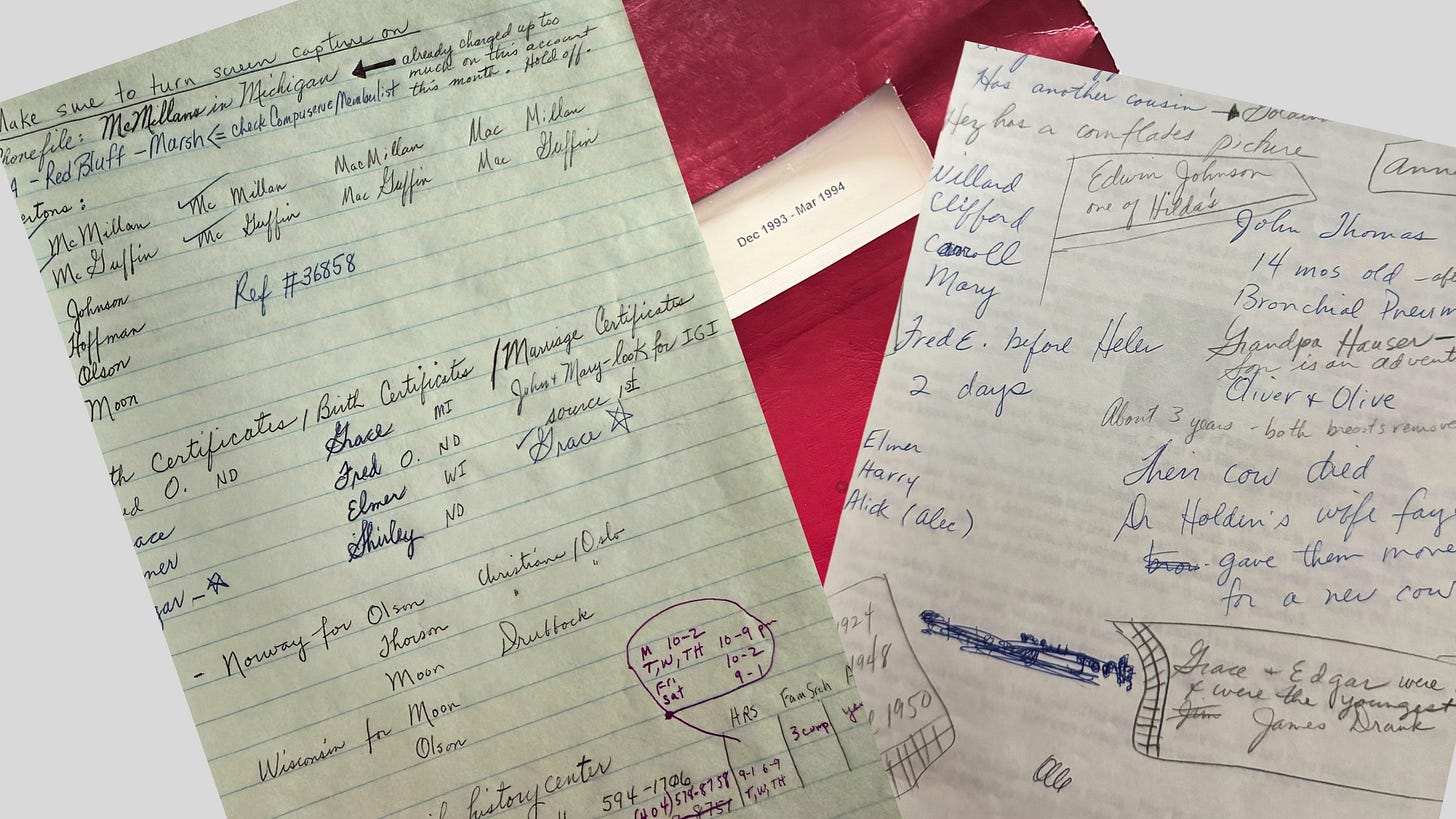 Make sure to turn screen capture on
Phonefile: McMillans in Michigan ← already charged up too
much on this account
this month. Hold off.
4 - Red Bluff - Marsh <= check Compuserve Membulist
ertons:
McMillan Mc Millan MacMillan Mac Millan
McGuffin Mc Guffin Mac Guffin Mac Guffin
Johnson
Hoffman
Olson
Moon
Ref #36858
th Certificates / Birth Certificates / Marriage Certificates
ed O. ND
ace
mer
gar -
Grace MI
Fred O. ND
Elmer WI
Shirley ND
John & Mary - look for IGI
source 1st
Grace
- Norway for Olson Christiane / Oslo
Thorson " "
Moon Drubbock
Wisconsin for Moon
Olson
history center
594-1706
(404) 579-8758
8757
M 10-2
T, W, TH 10-9 pm
Fri 10-2
Sat 9-1
HRS Fam Srch
3 comp
9-1 6-9
T, W, TH
Dec 1993 - Mar 1994
Has another cousin →
Hez has a cornflakes picture
Willard
Clifford
Carroll
Mary
Edwin Johnson
one of Hilda's
Ann
John Thomas
14 mos old - af
Bronchial Pneum
Fred E. before Helen
2 days
Grandpa Hauser -
Son is an advent
Oliver & Olive
About 3 years - both breasts remove
Elmer
Harry
Alick (Alec)
Their cow died
Dr Holden's wife Fay
gave them mone
for a new cow
1924
1948
1950
Grace & Edgar were
& were the youngest
Jim James Drank
Ole